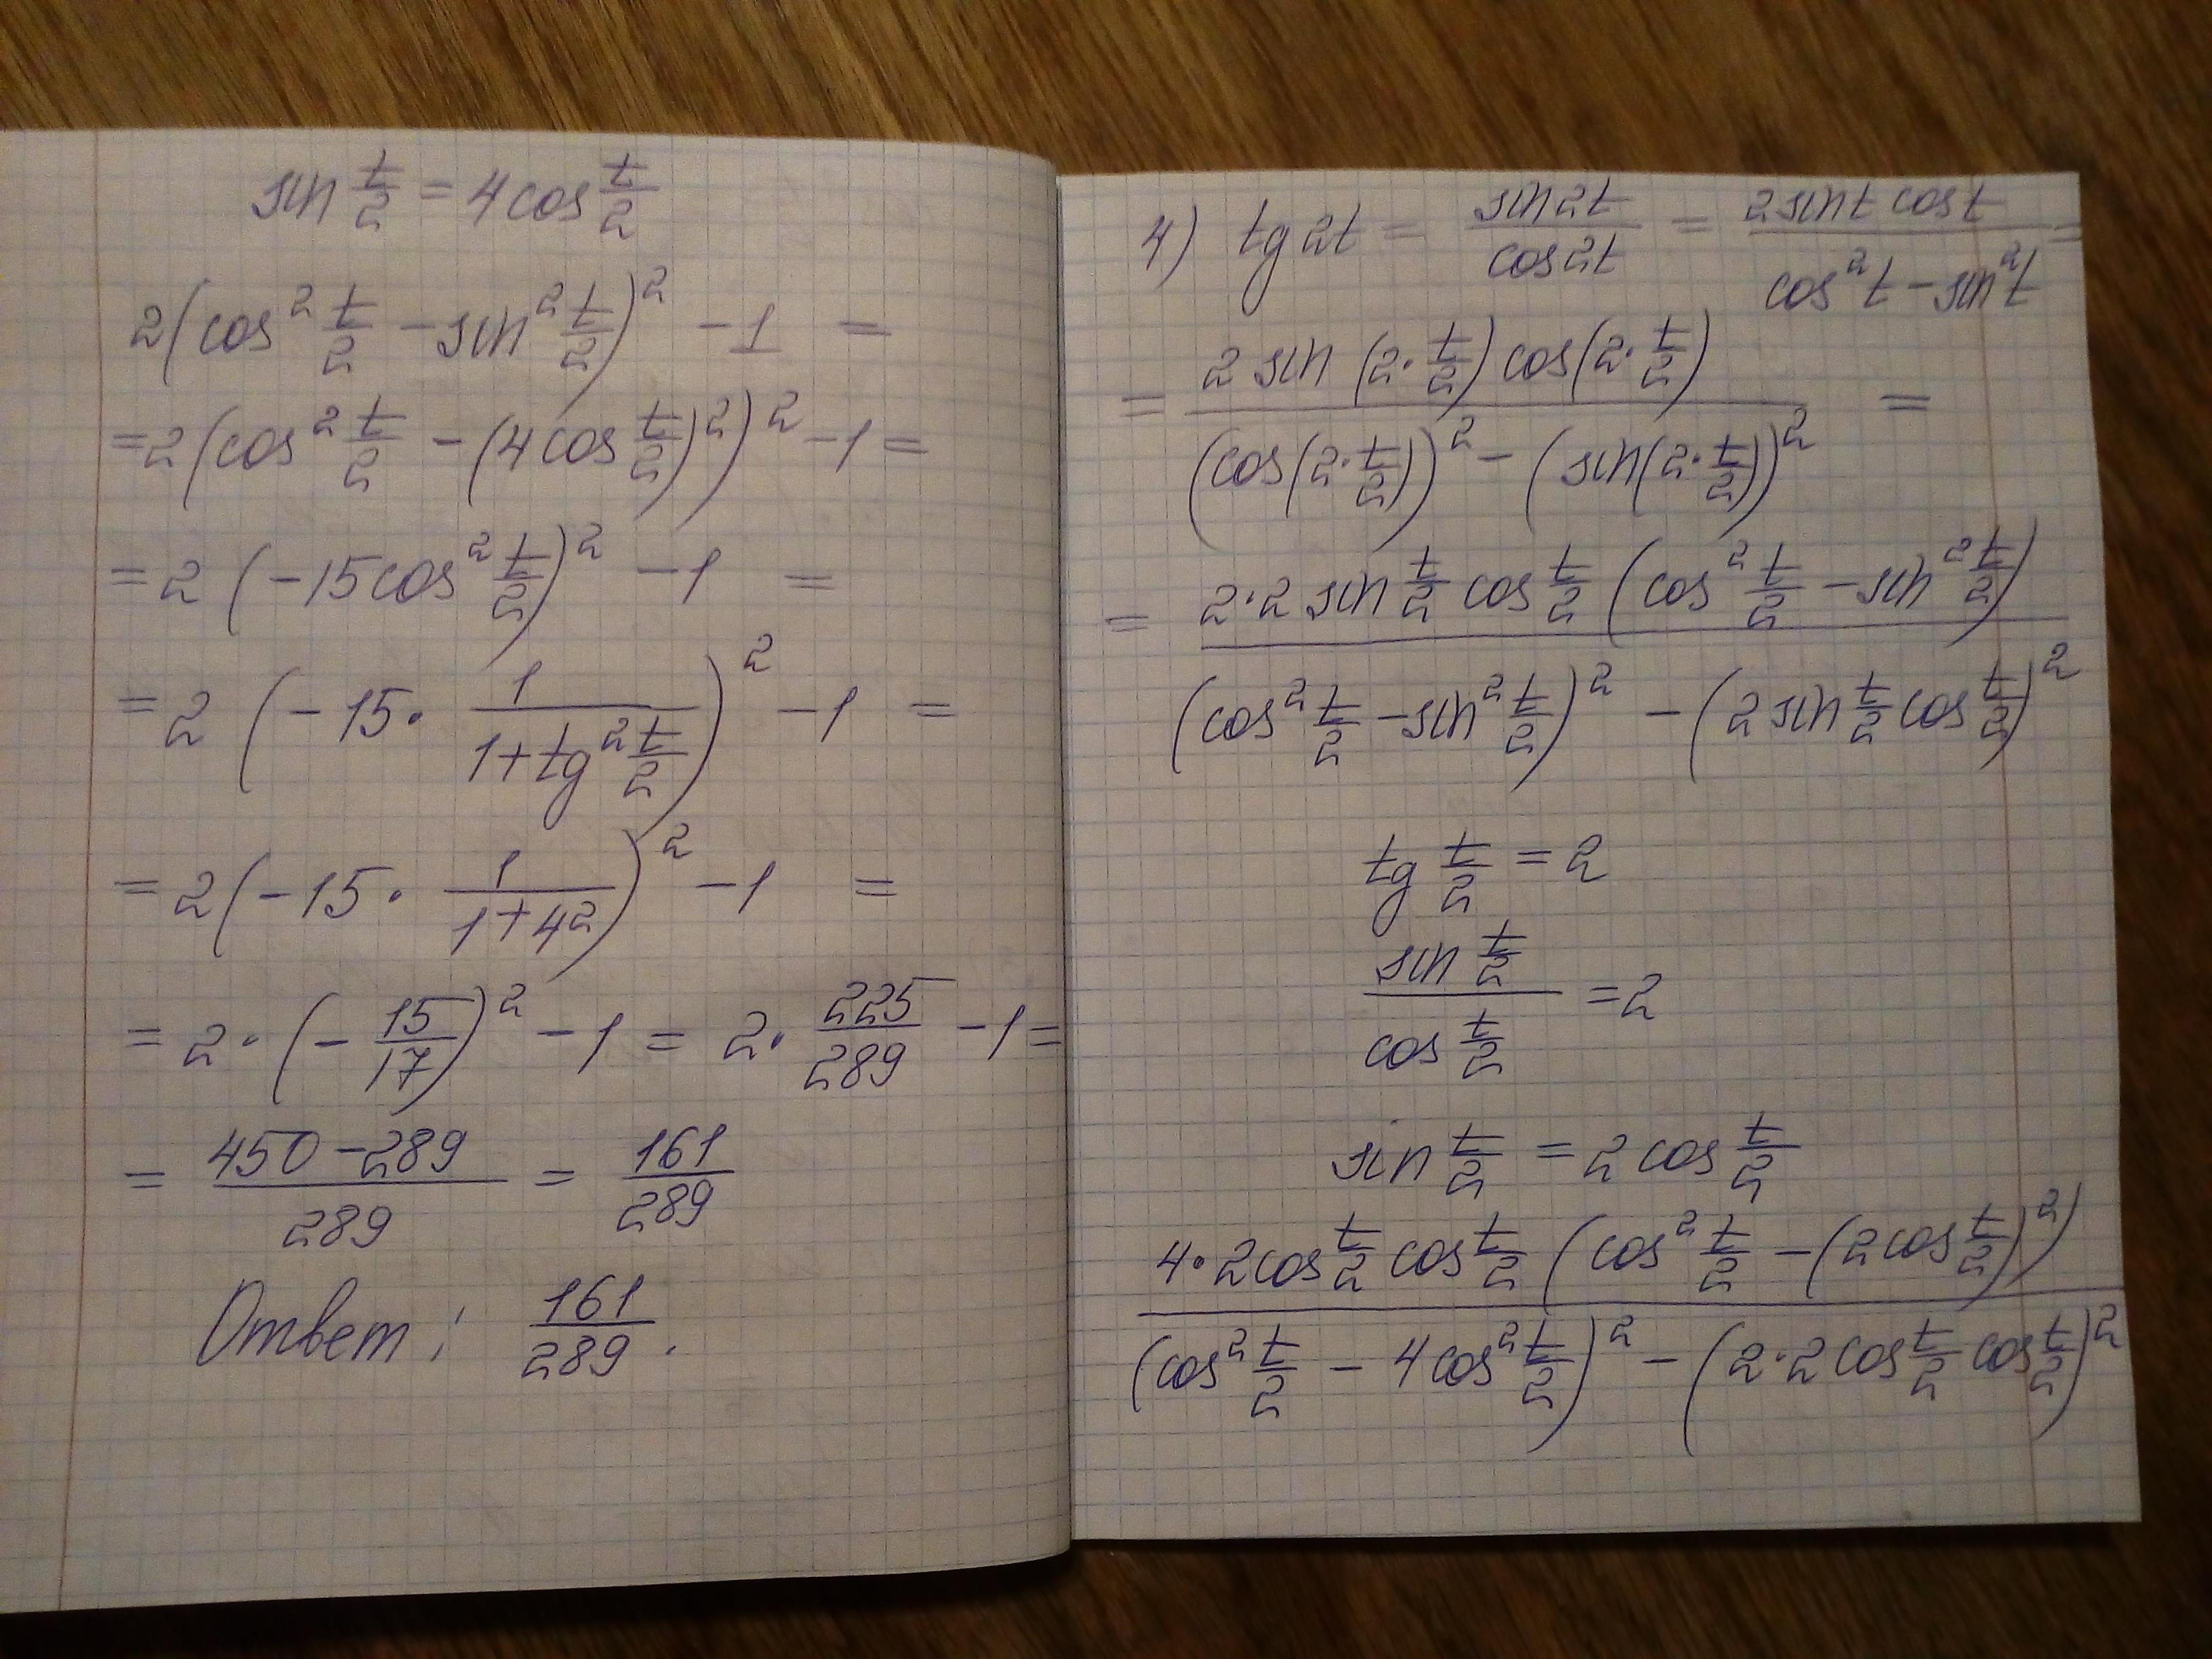 sin t/2 = 4 cos t/2
2(cos² t/2 − sin² t/2)² − 1 =
= 2(cos² t/2 − (4 cos t/2)²)² − 1 =
= 2(−15 cos² t/2)² − 1 =
= 2(−15 · 1/(1 + tg² t/2))² − 1 =
= 2(−15 · 1/(1 + 4²))² − 1 =
= 2 · (−15/17)² − 1 = 2 · 225/289 − 1 =
= (450 − 289)/289 = 161/289
Ответ: 161/289.
4) tg 2t = sin 2t/cos 2t = 2 sin t cos t/(cos² t − sin² t) =
= 2 sin (2 · t/2) cos (2 · t/2)/((cos (2 · t/2))² − (sin (2 · t/2))²) =
= 2 · 2 sin t/2 cos t/2 (cos² t/2 − sin² t/2)/((cos² t/2 − sin² t/2)² − (2 sin t/2 cos t/2)²)
tg t/2 = 2
sin t/2 / cos t/2 = 2
sin t/2 = 2 cos t/2
4 · 2 cos t/2 cos t/2 (cos² t/2 − (2 cos t/2)²)/((cos² t/2 − 4 cos² t/2)² − (2 · 2 cos t/2 cos t/2)²)